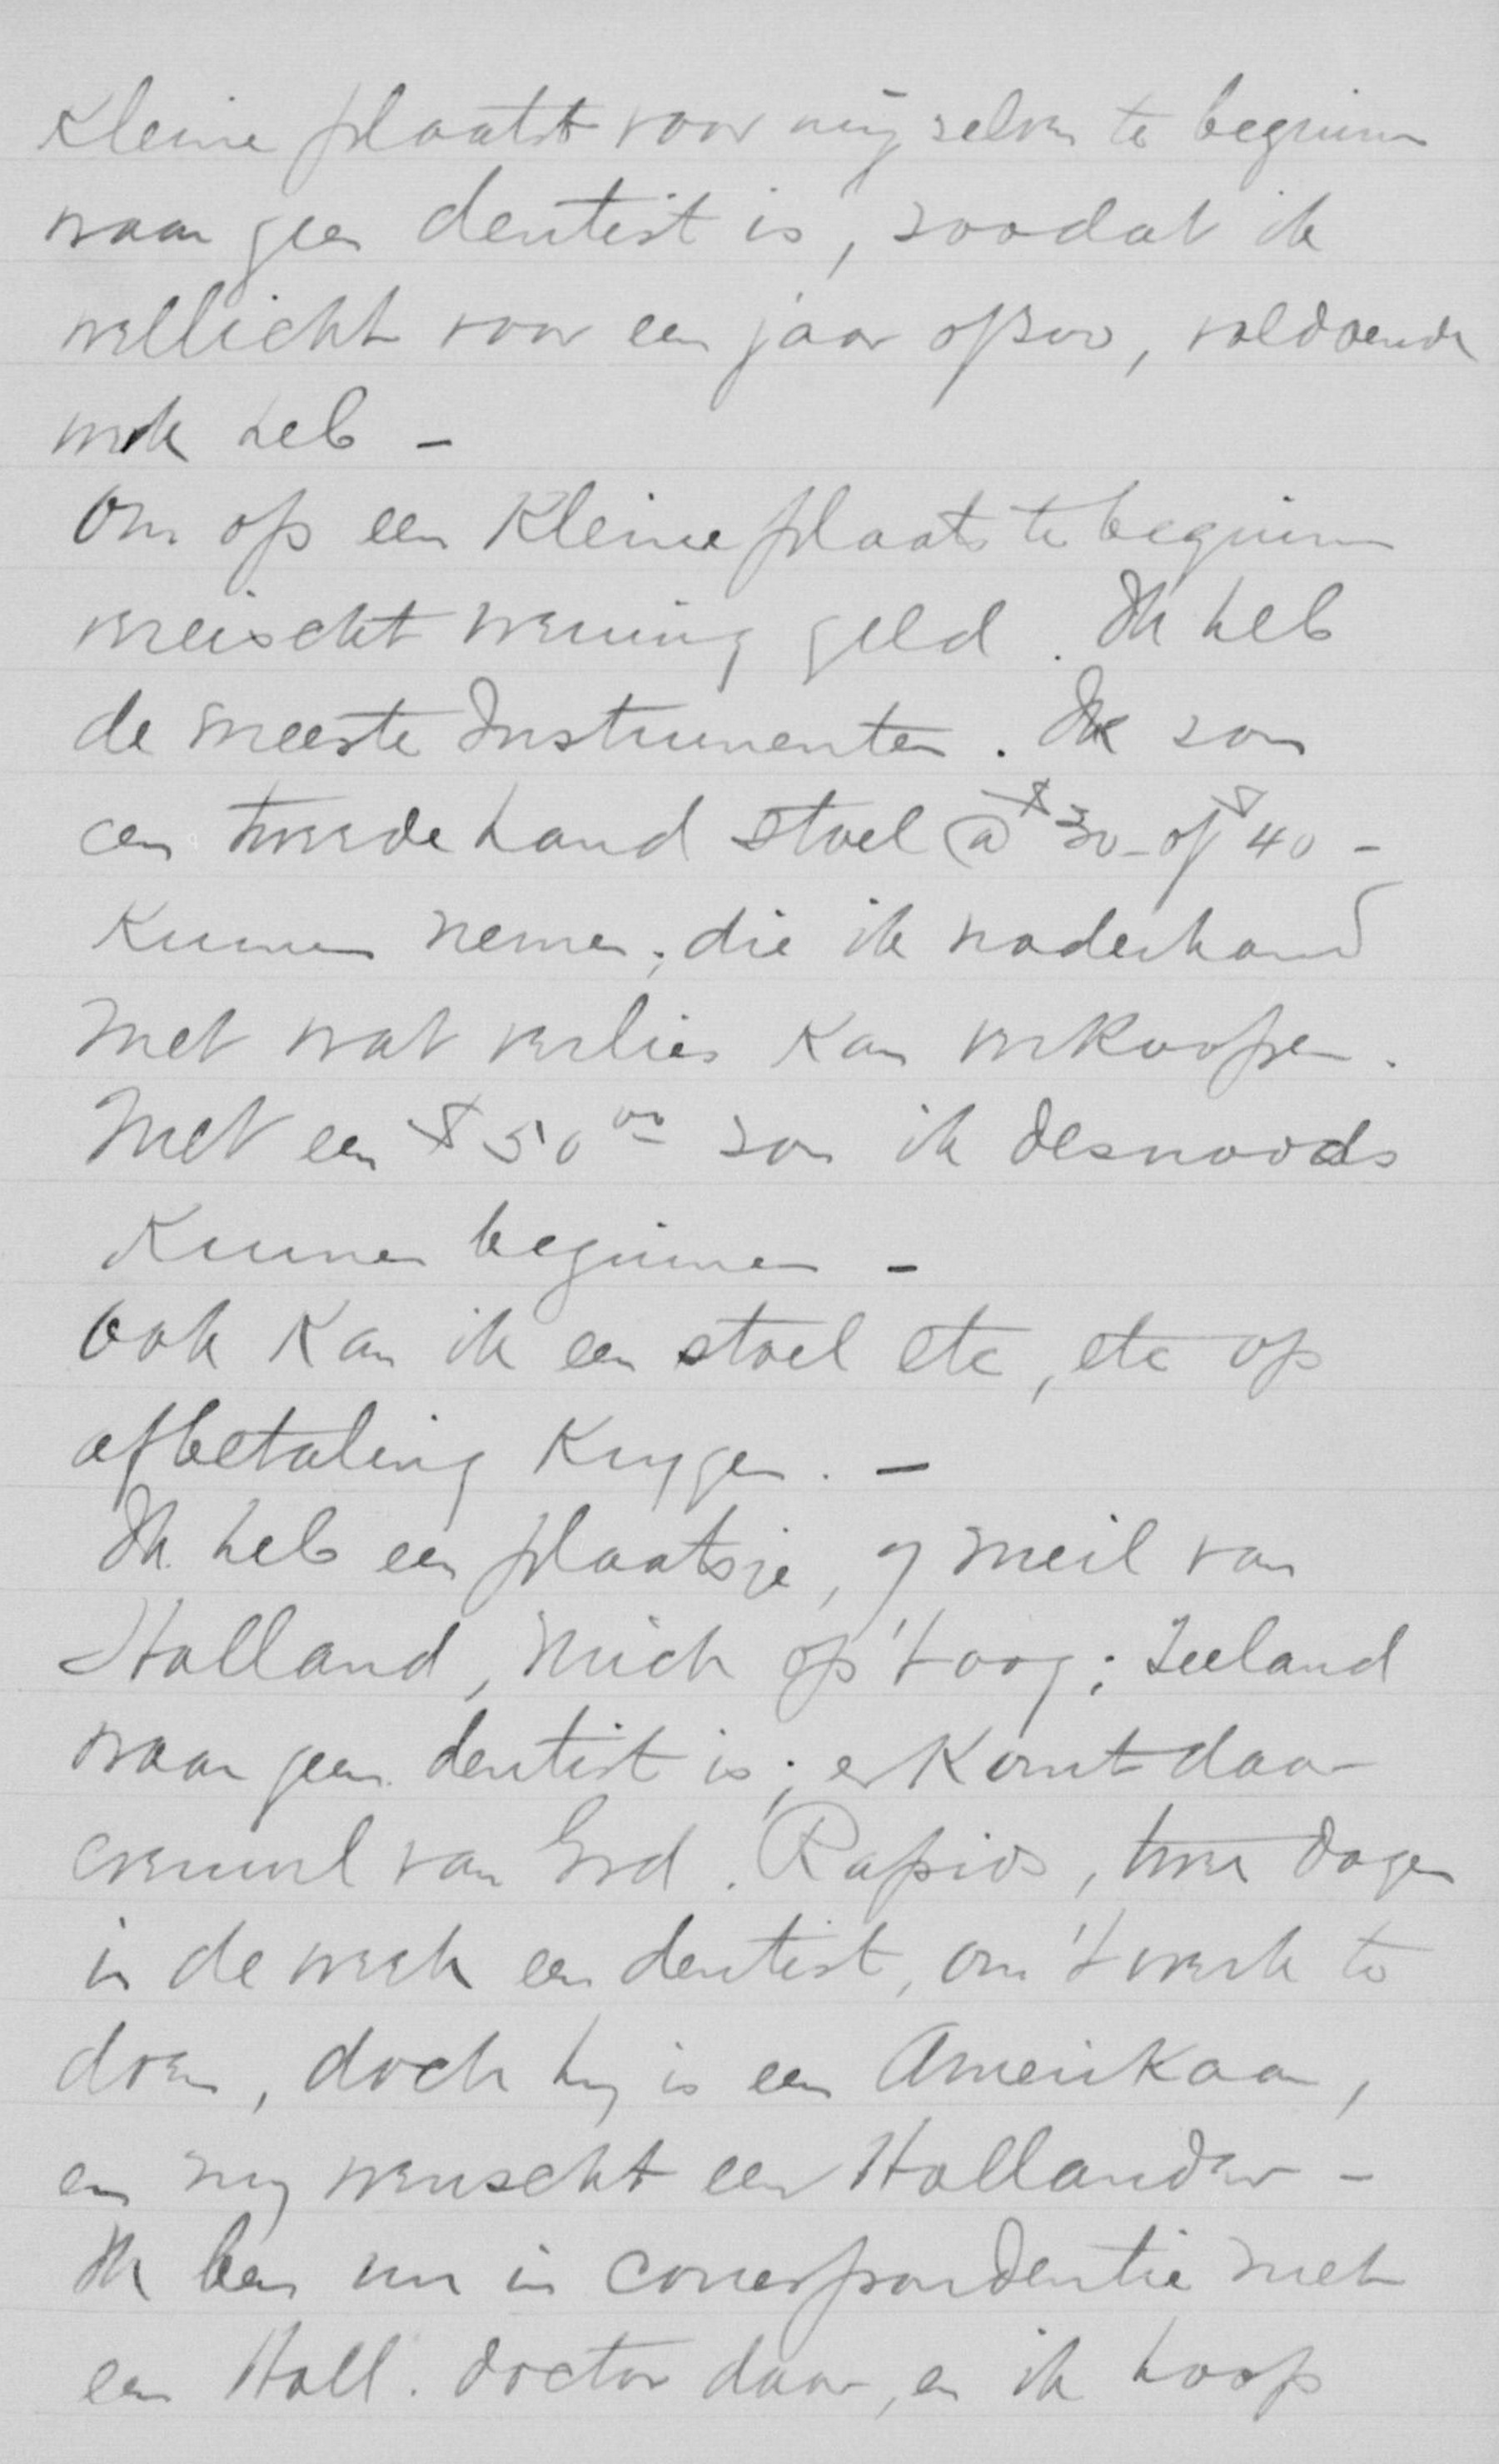 Kleine plaats voor mij zelven te beginnen
waar geen dentist is, zoodat ik
wellicht voor een jaar ofzoo, voldoende
werk heb -
Om op een Kleine plaats te beginnen
vereischt weinig geld. Ik heb
de meeste Instrumenten. Ik zou
een tweede hand stoel @ $30- of $40 -
Kunnen nemen; die ik naderhand
met wat verlies Kan verkoopen.
Met een $50 00 zou ik desnoods
Kunnen beginnen -
Ook Kan ik een stoel etc, etc op
afbetaling Krygen. -
Ik heb een plaatsje, 7 meil van
Holland, Mich op 't oog; Zeeland
waar geen dentist is; er Komt daar
evenwel van Grd. Rapids, twee dagen
in de week een dentist, om 't werk te
doen, doch hy is een Amerikaan,
en my wenscht een Hollander -
Ik ben nu in correspondentie met
een Holl. doctor daar, en ik hoop